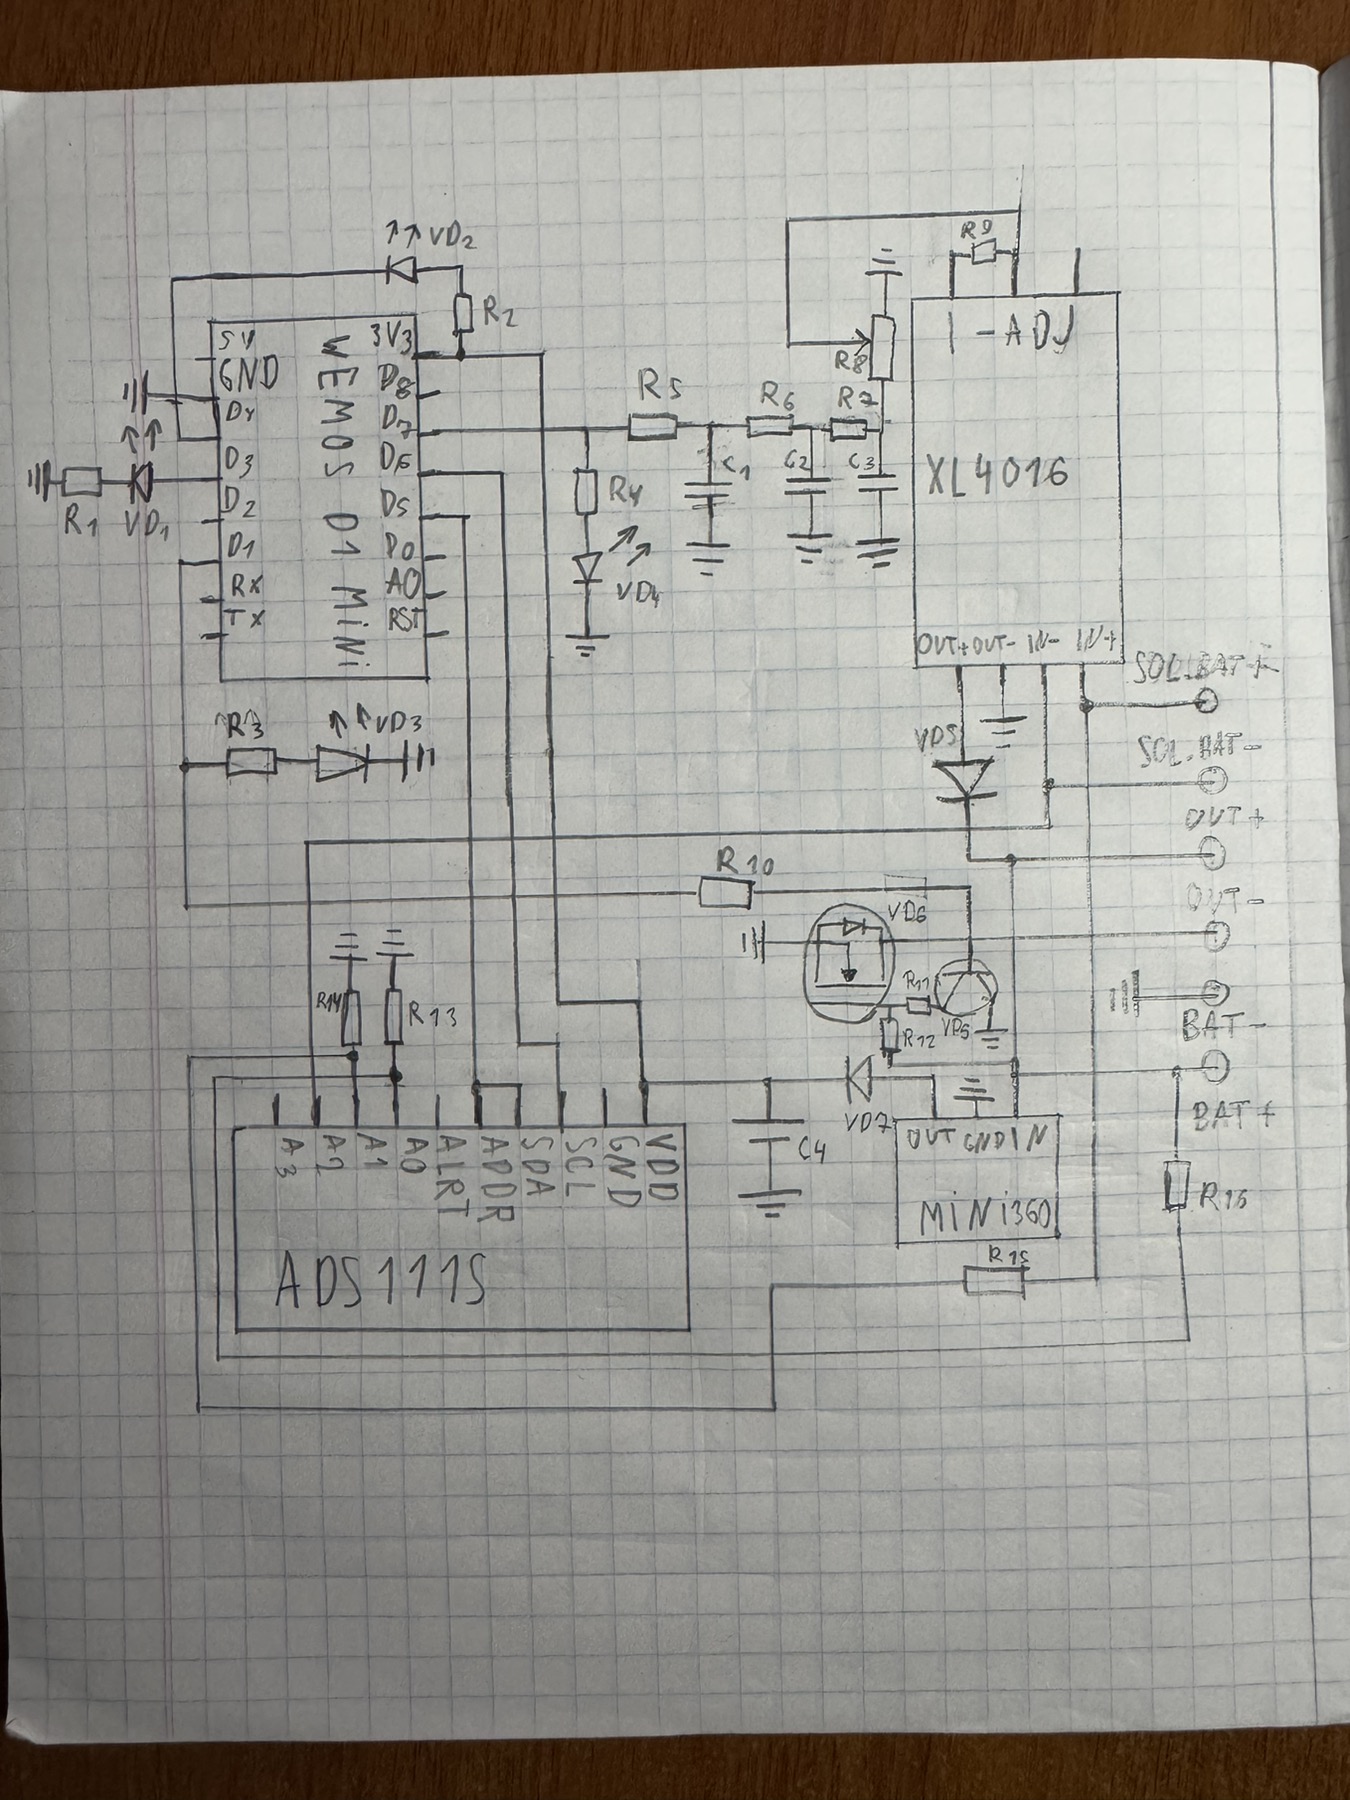 VD2
R2
5V
GND
D4
D3
D2
D1
RX
TX
WEMOS D1 MiNi
3V3
D8
D7
D6
D5
D0
A0
RST
R1
VD1
R3
VD3
R4
VD4
R5
R6
R7
R8
R9
C1
C2
C3
I-ADJ
XL4016
OUT+
OUT-
IN-
IN+
SOL.BAT+
SOL.BAT-
OUT+
OUT-
BAT-
BAT+
VD5
R10
VD6
R11
R12
VD5
R14
R13
A3
A2
A1
A0
ALRT
ADDR
SDA
SCL
GND
VDD
ADS1115
C4
VD7
OUT
GND
IN
MiNi360
R15
R16